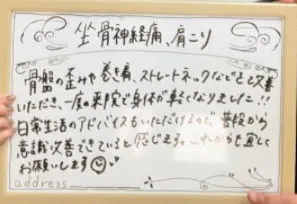 坐骨神経痛、肩こり
骨盤の歪みや巻き肩、ストレートネックなどを改善
いただき、一度の来院で身体が軽くなりました!!
日常生活のアドバイスもいただけるので、普段から
意識改善できていると感じます。これからも宜しく
お願いします
address